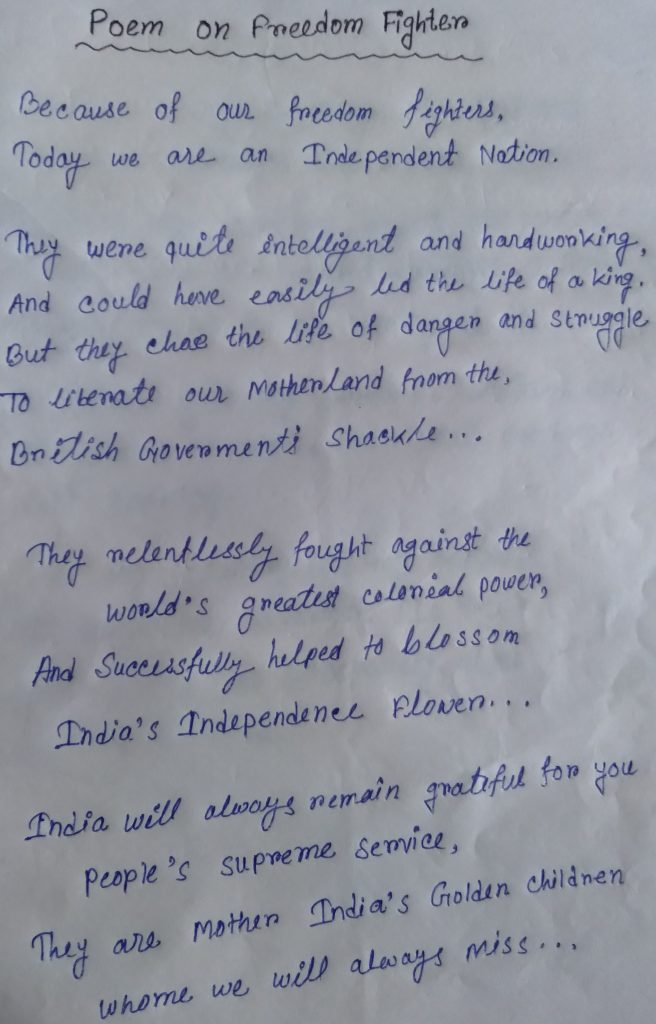 Poem on Freedom Fighter
Because of our freedom fighters,
Today we are an Independent Nation.
They were quite intelligent and hardworking,
And could have easily led the life of a king.
But they chae the life of danger and struggle
To liberate our Motherland from the,
British Goverment's Shackle...
They relentlessly fought against the
world's greatest colonial power,
And Successfully helped to blossom
India's Independence Flower...
India will always remain grateful for you
people's supreme service,
They are Mother India's Golden children
whome we will always miss...